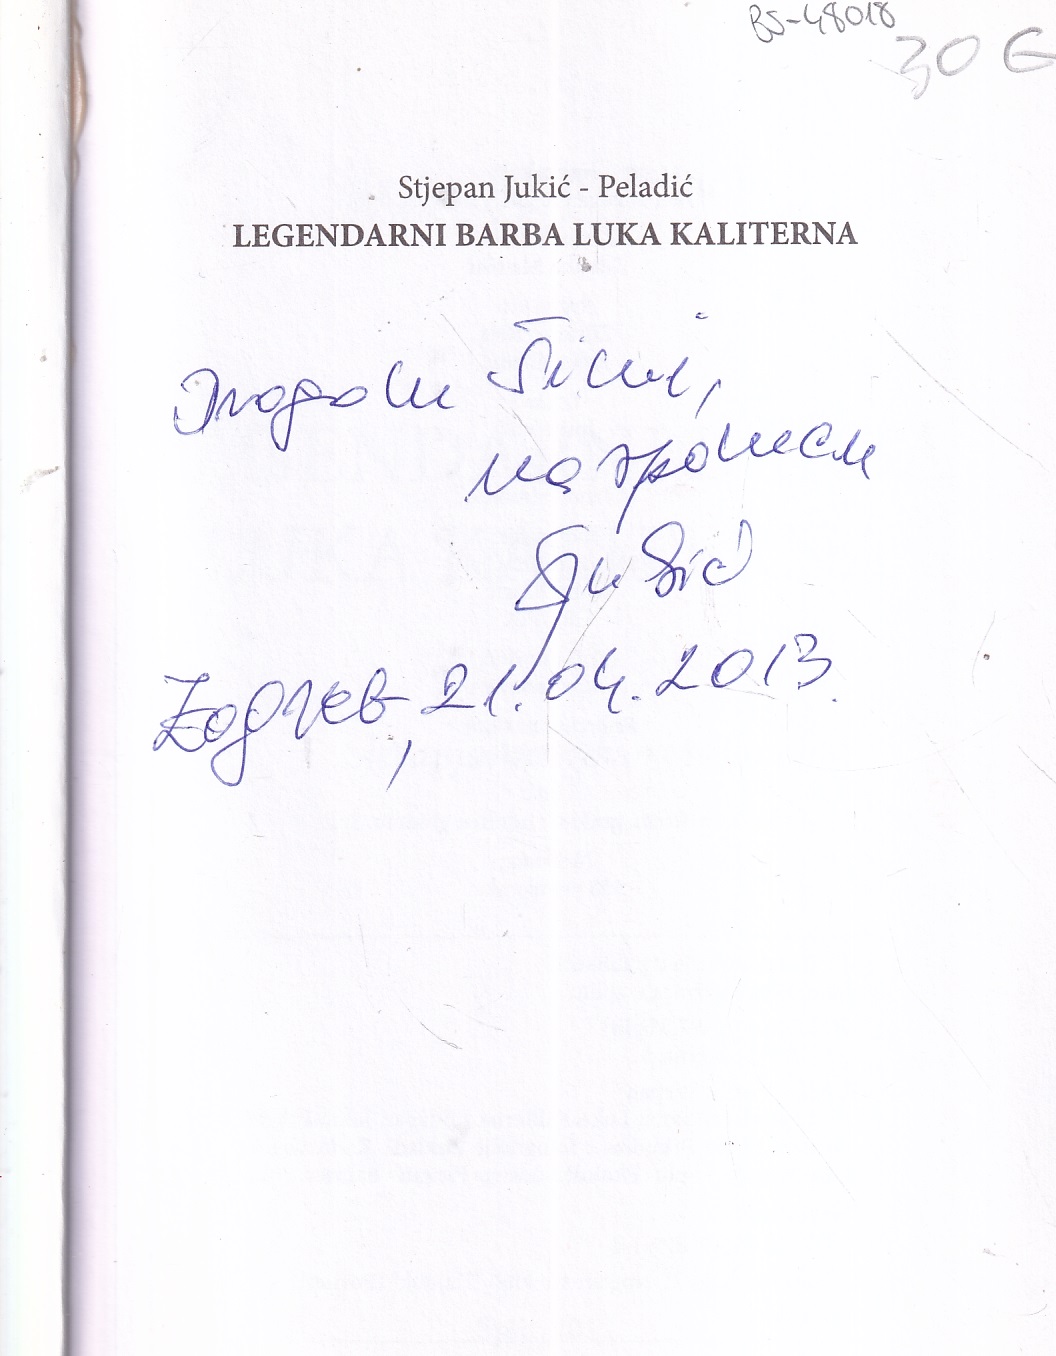 BS-48018
30 G
Stjepan Jukić - Peladić
LEGENDARNI BARBA LUKA KALITERNA
Dragom Šimi,
na spomen
Jukić
Zagreb, 21.04.2013.